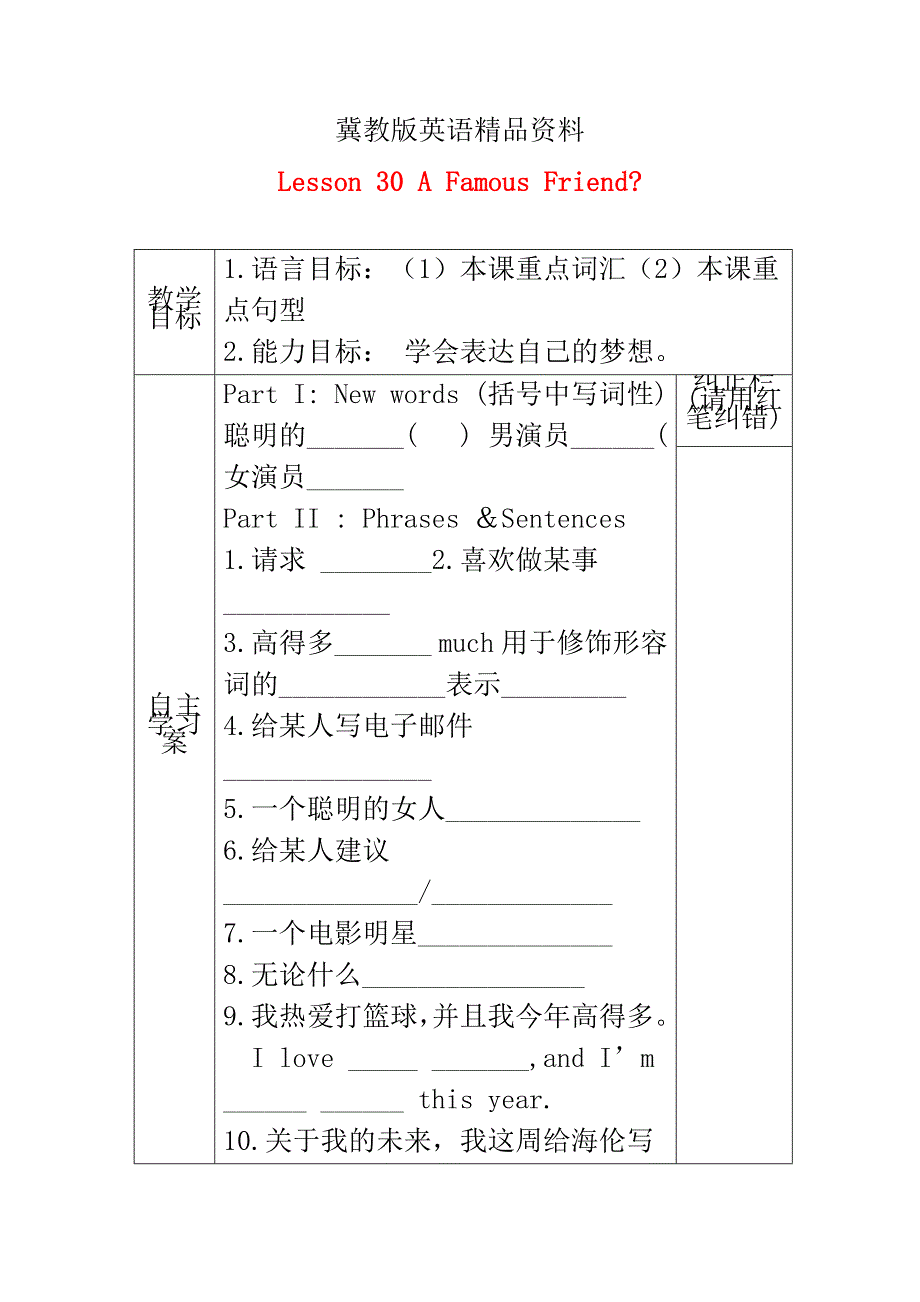 冀教版英语精品资料
Lesson 30 A Famous Friend?
教学
目标
1.语言目标：（1）本课重点词汇（2）本课重
点句型
2.能力目标： 学会表达自己的梦想。
自主
学习
案
Part I: New words (括号中写词性)
聪明的_______(   ) 男演员______(
女演员_______
Part II : Phrases ＆Sentences
1.请求 ________2.喜欢做某事
____________
3.高得多_______ much用于修饰形容
词的____________表示_________
4.给某人写电子邮件
_______________
5.一个聪明的女人______________
6.给某人建议
______________/_____________
7.一个电影明星______________
8.无论什么________________
9.我热爱打篮球,并且我今年高得多。
I love _____ _______,and I’m
______ ______ this year.
10.关于我的未来，我这周给海伦写
纠正栏
(请用红
笔纠错)